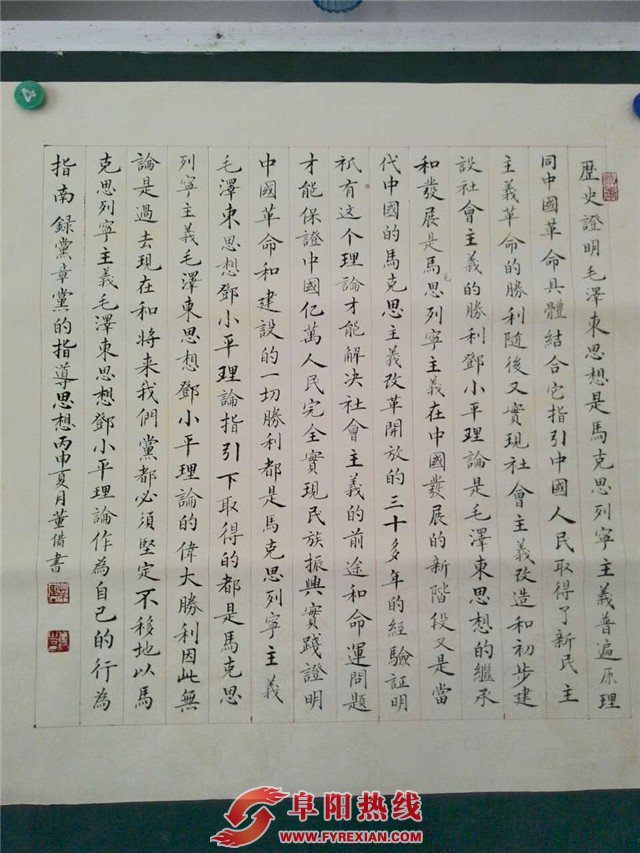 歷史證明毛澤東思想是馬克思列寧主義普遍原理
同中國革命具體結合它指引中國人民取得了新民主
主義革命的勝利隨後又實現社會主義改造和初步建
設社會主義的勝利鄧小平理論是毛澤東思想的繼承
和發展是馬克思列寧主義在中國發展的新階段又是當
代中國的馬克思主義改革開放的三十多年的經驗証明
祇有这个理論才能解决社會主義的前途和命運問題
才能保證中國亿萬人民完全實現民族振興實踐證明
中國革命和建設的一切勝利都是馬克思列寧主義
毛澤東思想鄧小平理論指引下取得的都是馬克思
列寧主義毛澤東思想鄧小平理論的偉大勝利因此無
論是過去現在和將來我們黨都必須堅定不移地以馬
克思列寧主義毛澤東思想鄧小平理論作為自己的行為
指南録黨章黨的指導思想丙申夏月董借書
阜阳热线
WWW.FYREXIAN.COM